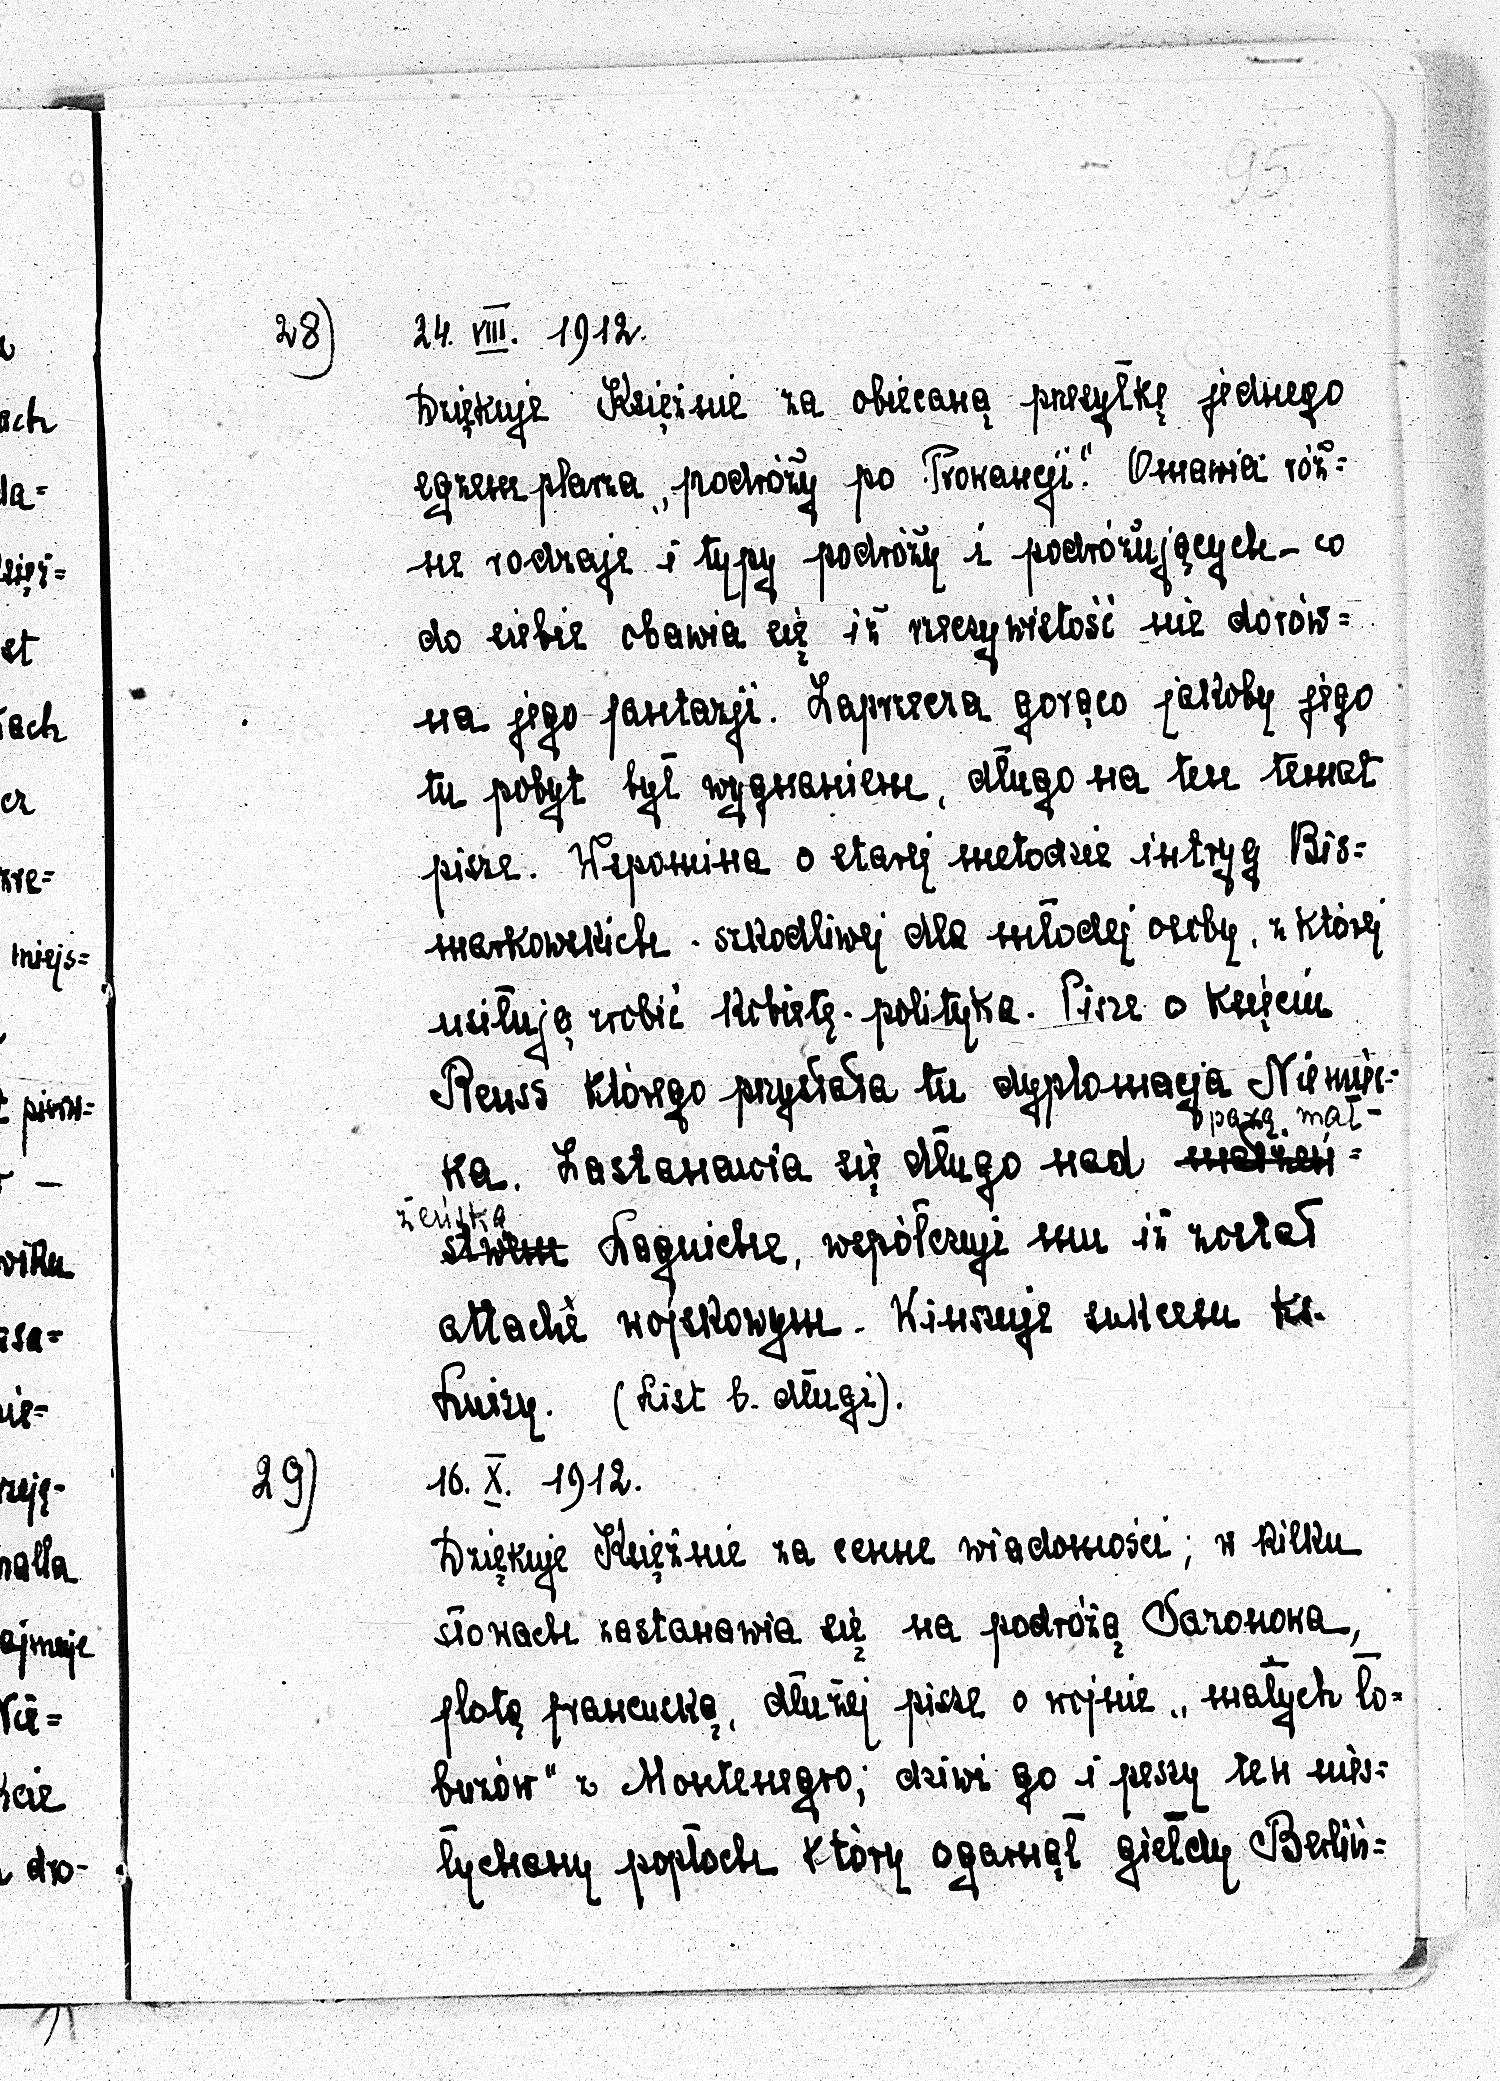 95
28) 24. VIII. 1912.
Dziękuje Księżnie za obiecaną przesyłkę jednego
egzemplarza „podróży po Prowancji." Omawia róż=
ne rodzaje i typy podróży i podróżujących - co
do siebie obawia się iż rzeczywistość nie dorów=
na jego fantazji. Zaprzecza gorąco jakoby jego
tu pobyt był wygnaniem, długo na ten temat
pisze. Wspomina o starej metodzie intryg Bis=
markowskich - szkodliwej dla młodej osoby, z której
usiłują zrobić kobietę - polityka. Pisze o księciu
Reuss którego przysłała tu dyplomacja Niemiec=
parą mał-
ka. Zastanawia się długo nad małżeń=
żeńską
stwem Laguiche, współczuje mu iż został
attaché wojskowym. Winszuje sukcesu ks.
Luizy. (List b. długi).
29) 16. X. 1912.
Dziękuje Księżnie za cenne wiadomości; w kilku
słowach zastanawia się na podróżą Sazonowa,
flotą francuską, dłużej pisze o wojnie „małych ło=
buzów" z Montenegro; dziwi go i peszy ten nies=
łychany popłoch który ogarnął giełdy Berliń=
ach
da=
et
cz
miejs=
pierw=
nie=
ajmuje
Nie=
dro-